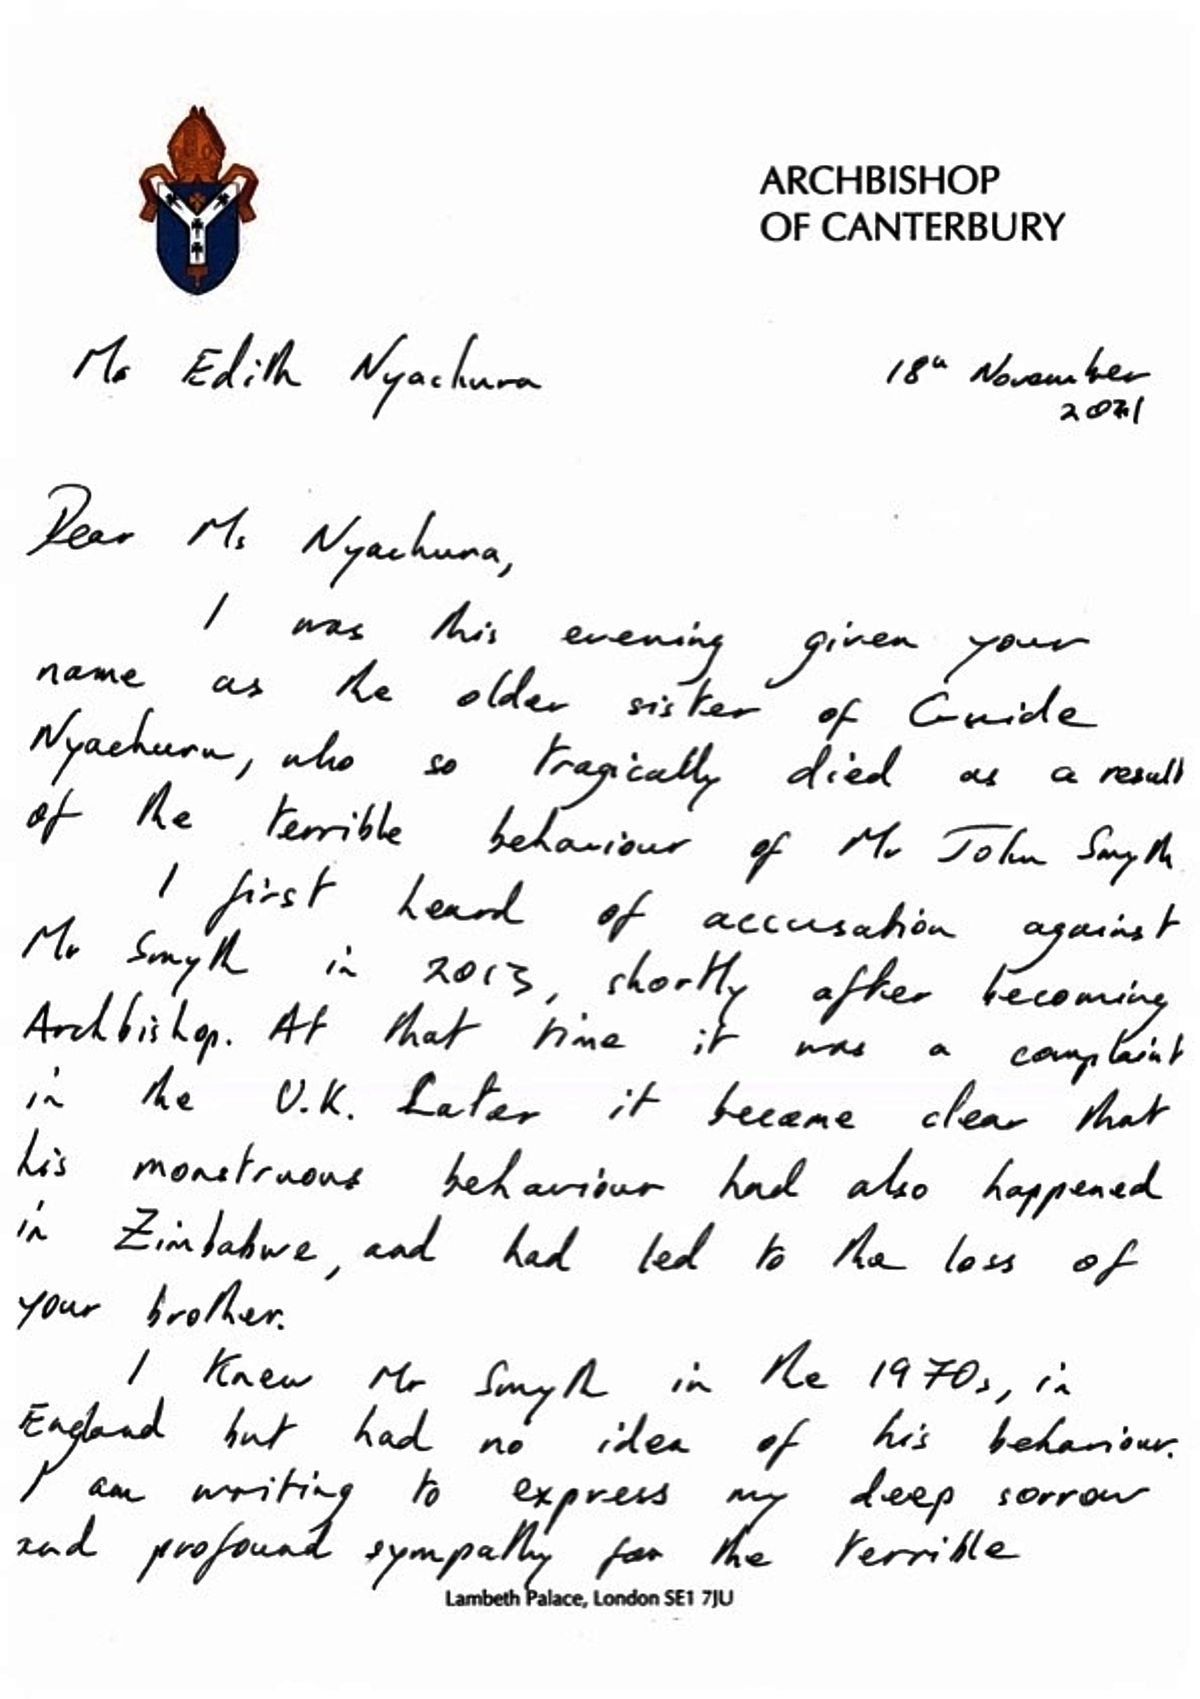 ARCHBISHOP
OF CANTERBURY
Ms Edith Nyachura
18th November
2021
Dear Ms Nyachura,
I was this evening given your
name as the older sister of Guide
Nyachuru, who so tragically died as a result
of the terrible behaviour of Mr John Smyth
I first heard of accusation against
Mr Smyth in 2013, shortly after becoming
Archbishop. At that time it was a complaint
in the U.K. Later it became clear that
his monstruous behaviour had also happened
in Zimbabwe, and had led to the loss of
your brother.
I knew Mr Smyth in the 1970s, in
England but had no idea of his behaviour.
I am writing to express my deep sorrow
and profound sympathy for the terrible
Lambeth Palace, London SE1 7JU